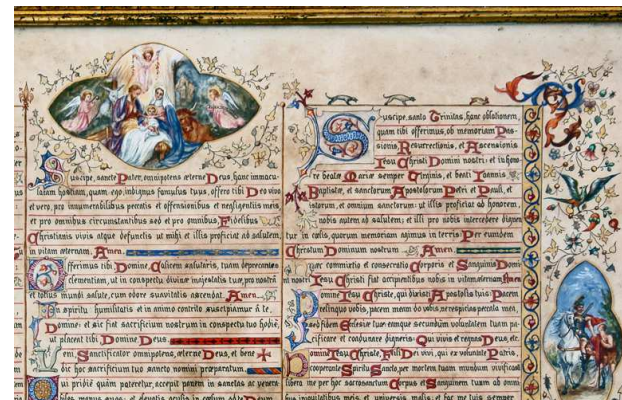 Suscipe, sancte Pater, omnipotens æterne Deus, hanc immacu-
latam hostiam, quam ego indignus famulus tuus, offero tibi Deo vivo
et vero, pro innumerabilibus peccatis et offensionibus et negligentiis meis
et pro omnibus circumstantibus sed et pro omnibus Fidelibus
Christianis vivis atque defunctis ut mihi et illis proficiat ad salutem
in vitam æternam. Amen.
Offerimus tibi Domine, Calicem salutaris, tuam deprecantes
clementiam, ut in conspectu divinæ majestatis tuæ, pro nostra
et totius mundi salute, cum odore suavitatis ascendat. Amen.
In spiritu humilitatis et in animo contrito suscipiamur a te
Domine: et sic fiat sacrificium nostrum in conspectu tuo hodie,
ut placeat tibi Domine Deus
Veni, Sanctificator omnipotens, æterne Deus, et bene
dic hoc sacrificium tuo sancto nomini præparatum.
Qui pridie quam pateretur, accepit panem in sanctas ac venera-
biles manus suas: et elevatis oculis in cœlum ad te Deum
Suscipe, sancta Trinitas, hanc oblationem,
quam tibi offerimus, ob memoriam Pas-
sionis, Resurrectionis, et Ascensionis
Jesu Christi Domini nostri: et in hono-
re beatæ Mariæ semper Virginis, et beati Joannis
Baptistæ, et sanctorum Apostolorum Petri et Pauli, et
istorum, et omnium sanctorum: ut illis proficiat ad honorem,
nobis autem ad salutem: et illi pro nobis intercedere dignen
tur in cœlis, quorum memoriam agimus in terris: Per eumdem
Christum Dominum nostrum. Amen.
Hæc commixtio et consecratio Corporis et Sanguinis Domi
ni nostri Jesu Christi fiat accipientibus nobis in vitam æternam Amen
Domine Jesu Christe, qui dixisti Apostolis tuis: Pacem
relinquo vobis, pacem meam do vobis, ne respicias peccata mea,
sed fidem Ecclesiæ tuæ: eamque secundum voluntatem tuam pa-
cificare et coadunare digneris: Qui vivis et regnas Deus, etc.
Domine Jesu Christe, Fili Dei vivi, qui ex voluntate Patris,
cooperante Spiritu Sancto, per mortem tuam mundum vivificasti
libera me per hoc sacrosanctum Corpus et Sanguinem tuum ab omni
bus iniquitatibus meis, et universis malis: et fac me tuis semper